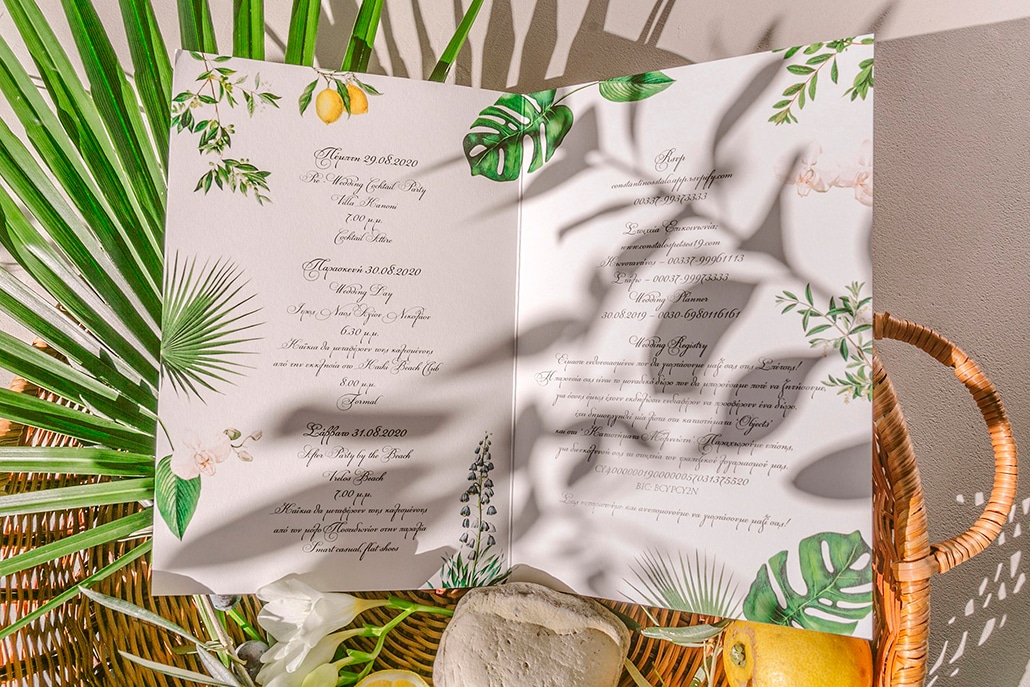 Πέμπτη 29.08.2020
Pre Wedding Cocktail Party
Villa Kanoni
7.00 μ.μ.
Cocktail Attire
Παρασκευή 30.08.2020
Wedding Day
Ιερός Ναός Αγίου Νικολάου
6.30 μ.μ.
Καΐκια θα μεταφέρουν τους καλεσμένους
από την εκκλησία στο Kaiki Beach Club
8.00 μ.μ.
Formal
Σάββατο 31.08.2020
After Party by the Beach
Vrelos Beach
7.00 μ.μ.
Καΐκια θα μεταφέρουν τους καλεσμένους
από τον μόλο Ποσειδωνίου στην παραλία
Smart casual, flat shoes
Rsvp
constantinosstalo.app.rsvpify.com
00337-99373333
Στοιχεία Επικοινωνίας:
www.constalospetses19.com
Κωνσταντίνος – 00337-99961113
Στάλω – 00037-99973333
Wedding Planner
30.08.2019 – 0030-6980116161
Wedding Registry
Είμαστε ενθουσιασμένοι που θα γιορτάσουμε μαζί σας στις Σπέτσες!
Η παρουσία σας είναι το μοναδικό δώρο που θα μπορούσαμε ποτέ να ζητήσουμε,
για όσους όμως έχουν εκδηλώσει ενδιαφέρον να προσφέρουν ένα δώρο,
έχει δημιουργηθεί μία λίστα στο κατάστημα "Objects"
και στο "Κατάστημα Μαβρινίτη". Παραχωρούμε επίσης,
για διευκόλυνσή σας, τα στοιχεία του τραπεζικού λογαριασμού μας.
CY40000019000000570313755​20
BIC: BCYPCY2N
Σας περιμένουμε και ανυπομονούμε να γιορτάσουμε μαζί σας!